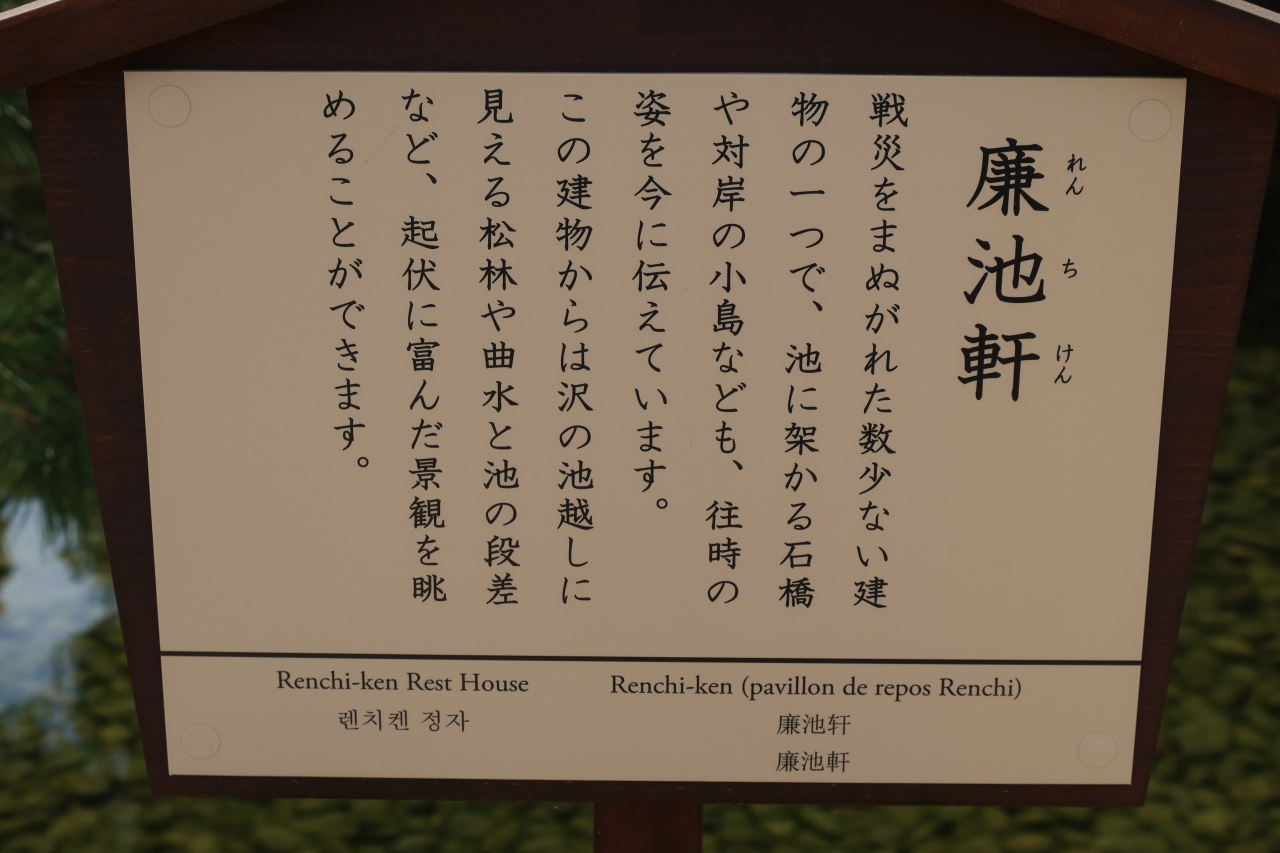 廉池軒
れん ち けん
戦災をまぬがれた数少ない建
物の一つで、池に架かる石橋
や対岸の小島なども、往時の
姿を今に伝えています。
この建物からは沢の池越しに
見える松林や曲水と池の段差
など、起伏に富んだ景観を眺
めることができます。
Renchi-ken Rest House
렌치켄 정자
Renchi-ken (pavillon de repos Renchi)
廉池轩
廉池軒